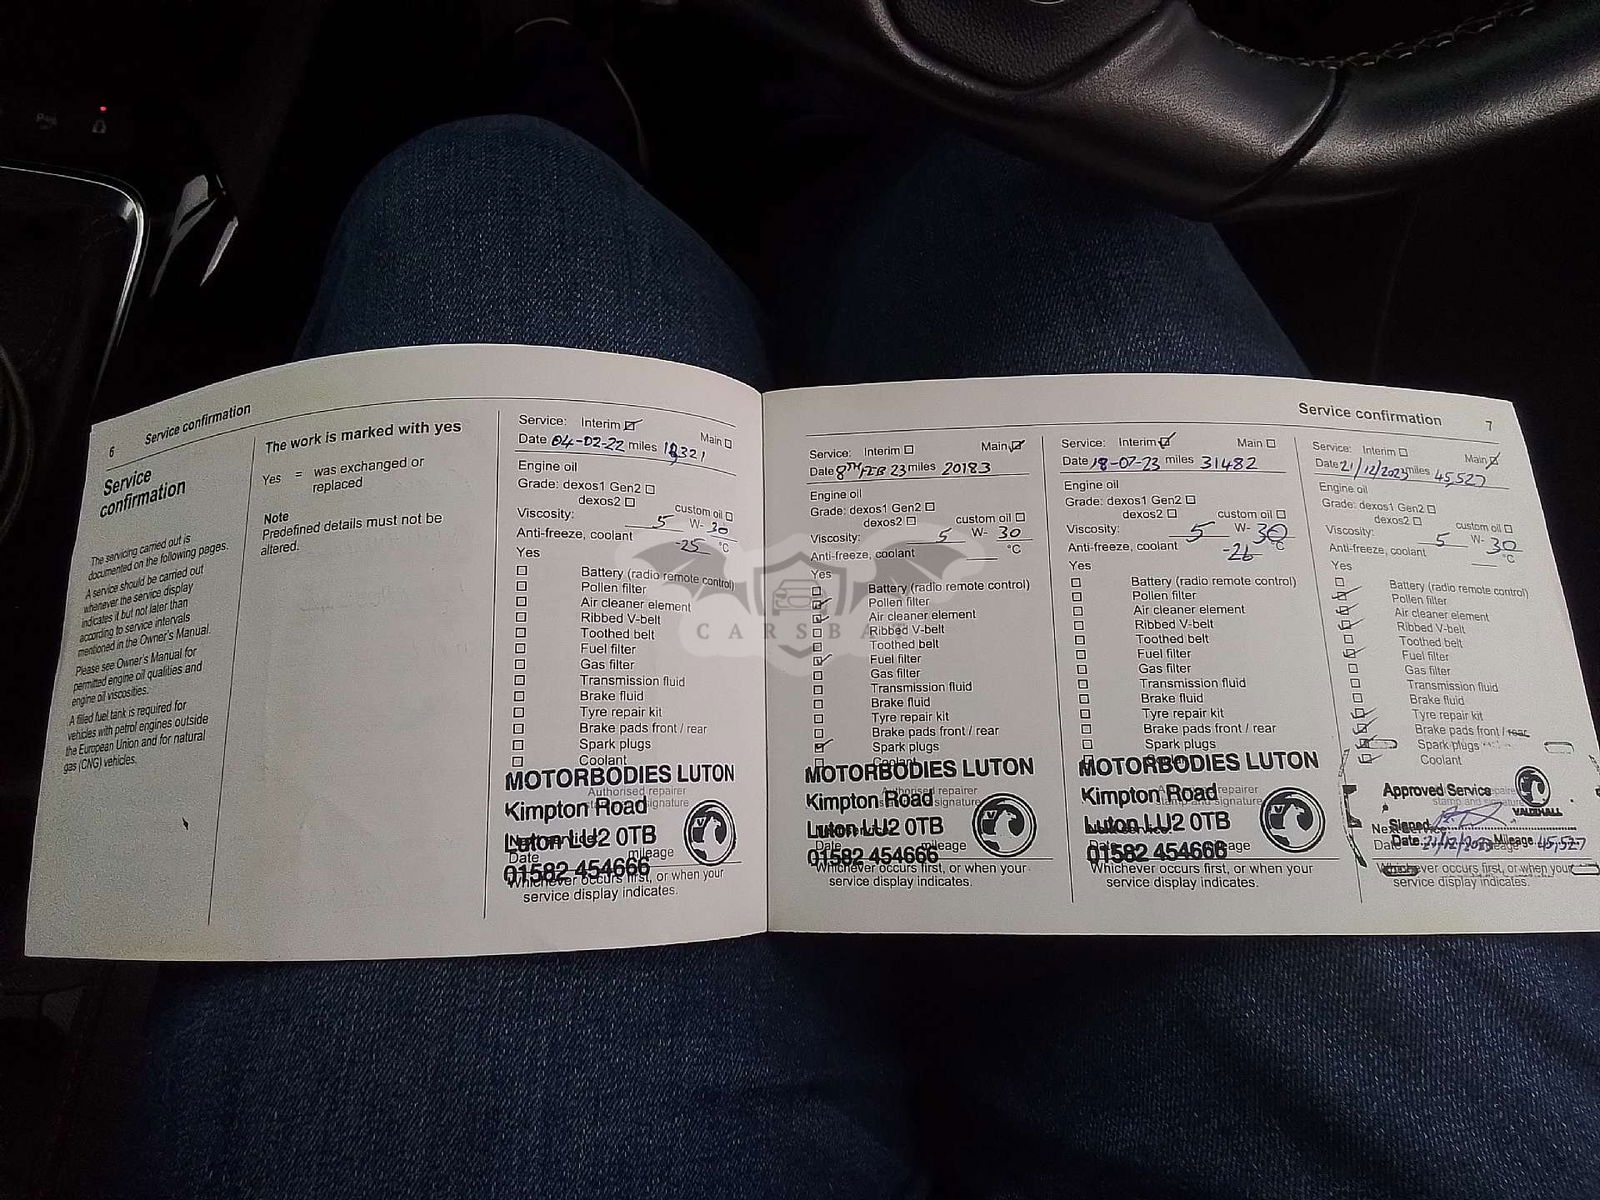 6
Service confirmation
Service
confirmation
The servicing carried out is
documented on the following pages.
A service should be carried out
whenever the service display
indicates it but not later than
according to service intervals
mentioned in the Owner's Manual.
Please see Owner's Manual for
permitted engine oil qualities and
engine oil viscosities.
A filled fuel tank is required for
vehicles with petrol engines outside
the European Union and for natural
gas (CNG) vehicles.
The work is marked with yes
Yes = was exchanged or
replaced
Note
Predefined details must not be
altered.
Service: Interim Main
Date 04-02-22 miles
Engine oil
Grade: dexos1 Gen2
dexos2 custom oil
Viscosity: 5 W- 30
Anti-freeze, coolant -25 °C
Yes
Battery (radio remote control)
Pollen filter
Air cleaner element
Ribbed V-belt
Toothed belt
Fuel filter
Gas filter
Transmission fluid
Brake fluid
Tyre repair kit
Brake pads front / rear
Spark plugs
Coolant
MOTORBODIES LUTON
Authorised repairer
Kimpton Road
signature
Luton LU2 0TB
Date mileage
01582 454666
Whichever occurs first, or when your
service display indicates.
Service confirmation
7
Service: Interim Main
Date 8TH FEB 23 miles 20183
Engine oil
Grade: dexos1 Gen2
dexos2 custom oil
Viscosity: 5 W- 30
Anti-freeze, coolant °C
Yes
Battery (radio remote control)
Pollen filter
Air cleaner element
Ribbed V-belt
Toothed belt
Fuel filter
Gas filter
Transmission fluid
Brake fluid
Tyre repair kit
Brake pads front / rear
Spark plugs
Coolant
MOTORBODIES LUTON
Authorised repairer
Kimpton Road
signature
Luton LU2 0TB
Date mileage
01582 454666
Whichever occurs first, or when your
service display indicates.
Service: Interim Main
Date 18-07-23 miles 31482
Engine oil
Grade: dexos1 Gen2
dexos2 custom oil
Viscosity: 5 W- 30
Anti-freeze, coolant -26 °C
Yes
Battery (radio remote control)
Pollen filter
Air cleaner element
Ribbed V-belt
Toothed belt
Fuel filter
Gas filter
Transmission fluid
Brake fluid
Tyre repair kit
Brake pads front / rear
Spark plugs
MOTORBODIES LUTON
Authorised repairer
Kimpton Road
stamp and signature
Luton LU2 0TB
Date mileage
01582 454666
Whichever occurs first, or when your
service display indicates.
Service: Interim Main
Date 21/12/2023 miles 45,527
Engine oil
Grade: dexos1 Gen2
dexos2 custom oil
Viscosity: 5 W- 30
Anti-freeze, coolant °C
Yes
Battery (radio remote control)
Pollen filter
Air cleaner element
Ribbed V-belt
Toothed belt
Fuel filter
Gas filter
Transmission fluid
Brake fluid
Tyre repair kit
Brake pads front / rear
Spark plugs
Coolant
Approved Service
stamp and signature
VAUXHALL
Signed
Date 21/12/2023 Mileage 45,527
Whichever occurs first, or when your
service display indicates.
CARSBAT